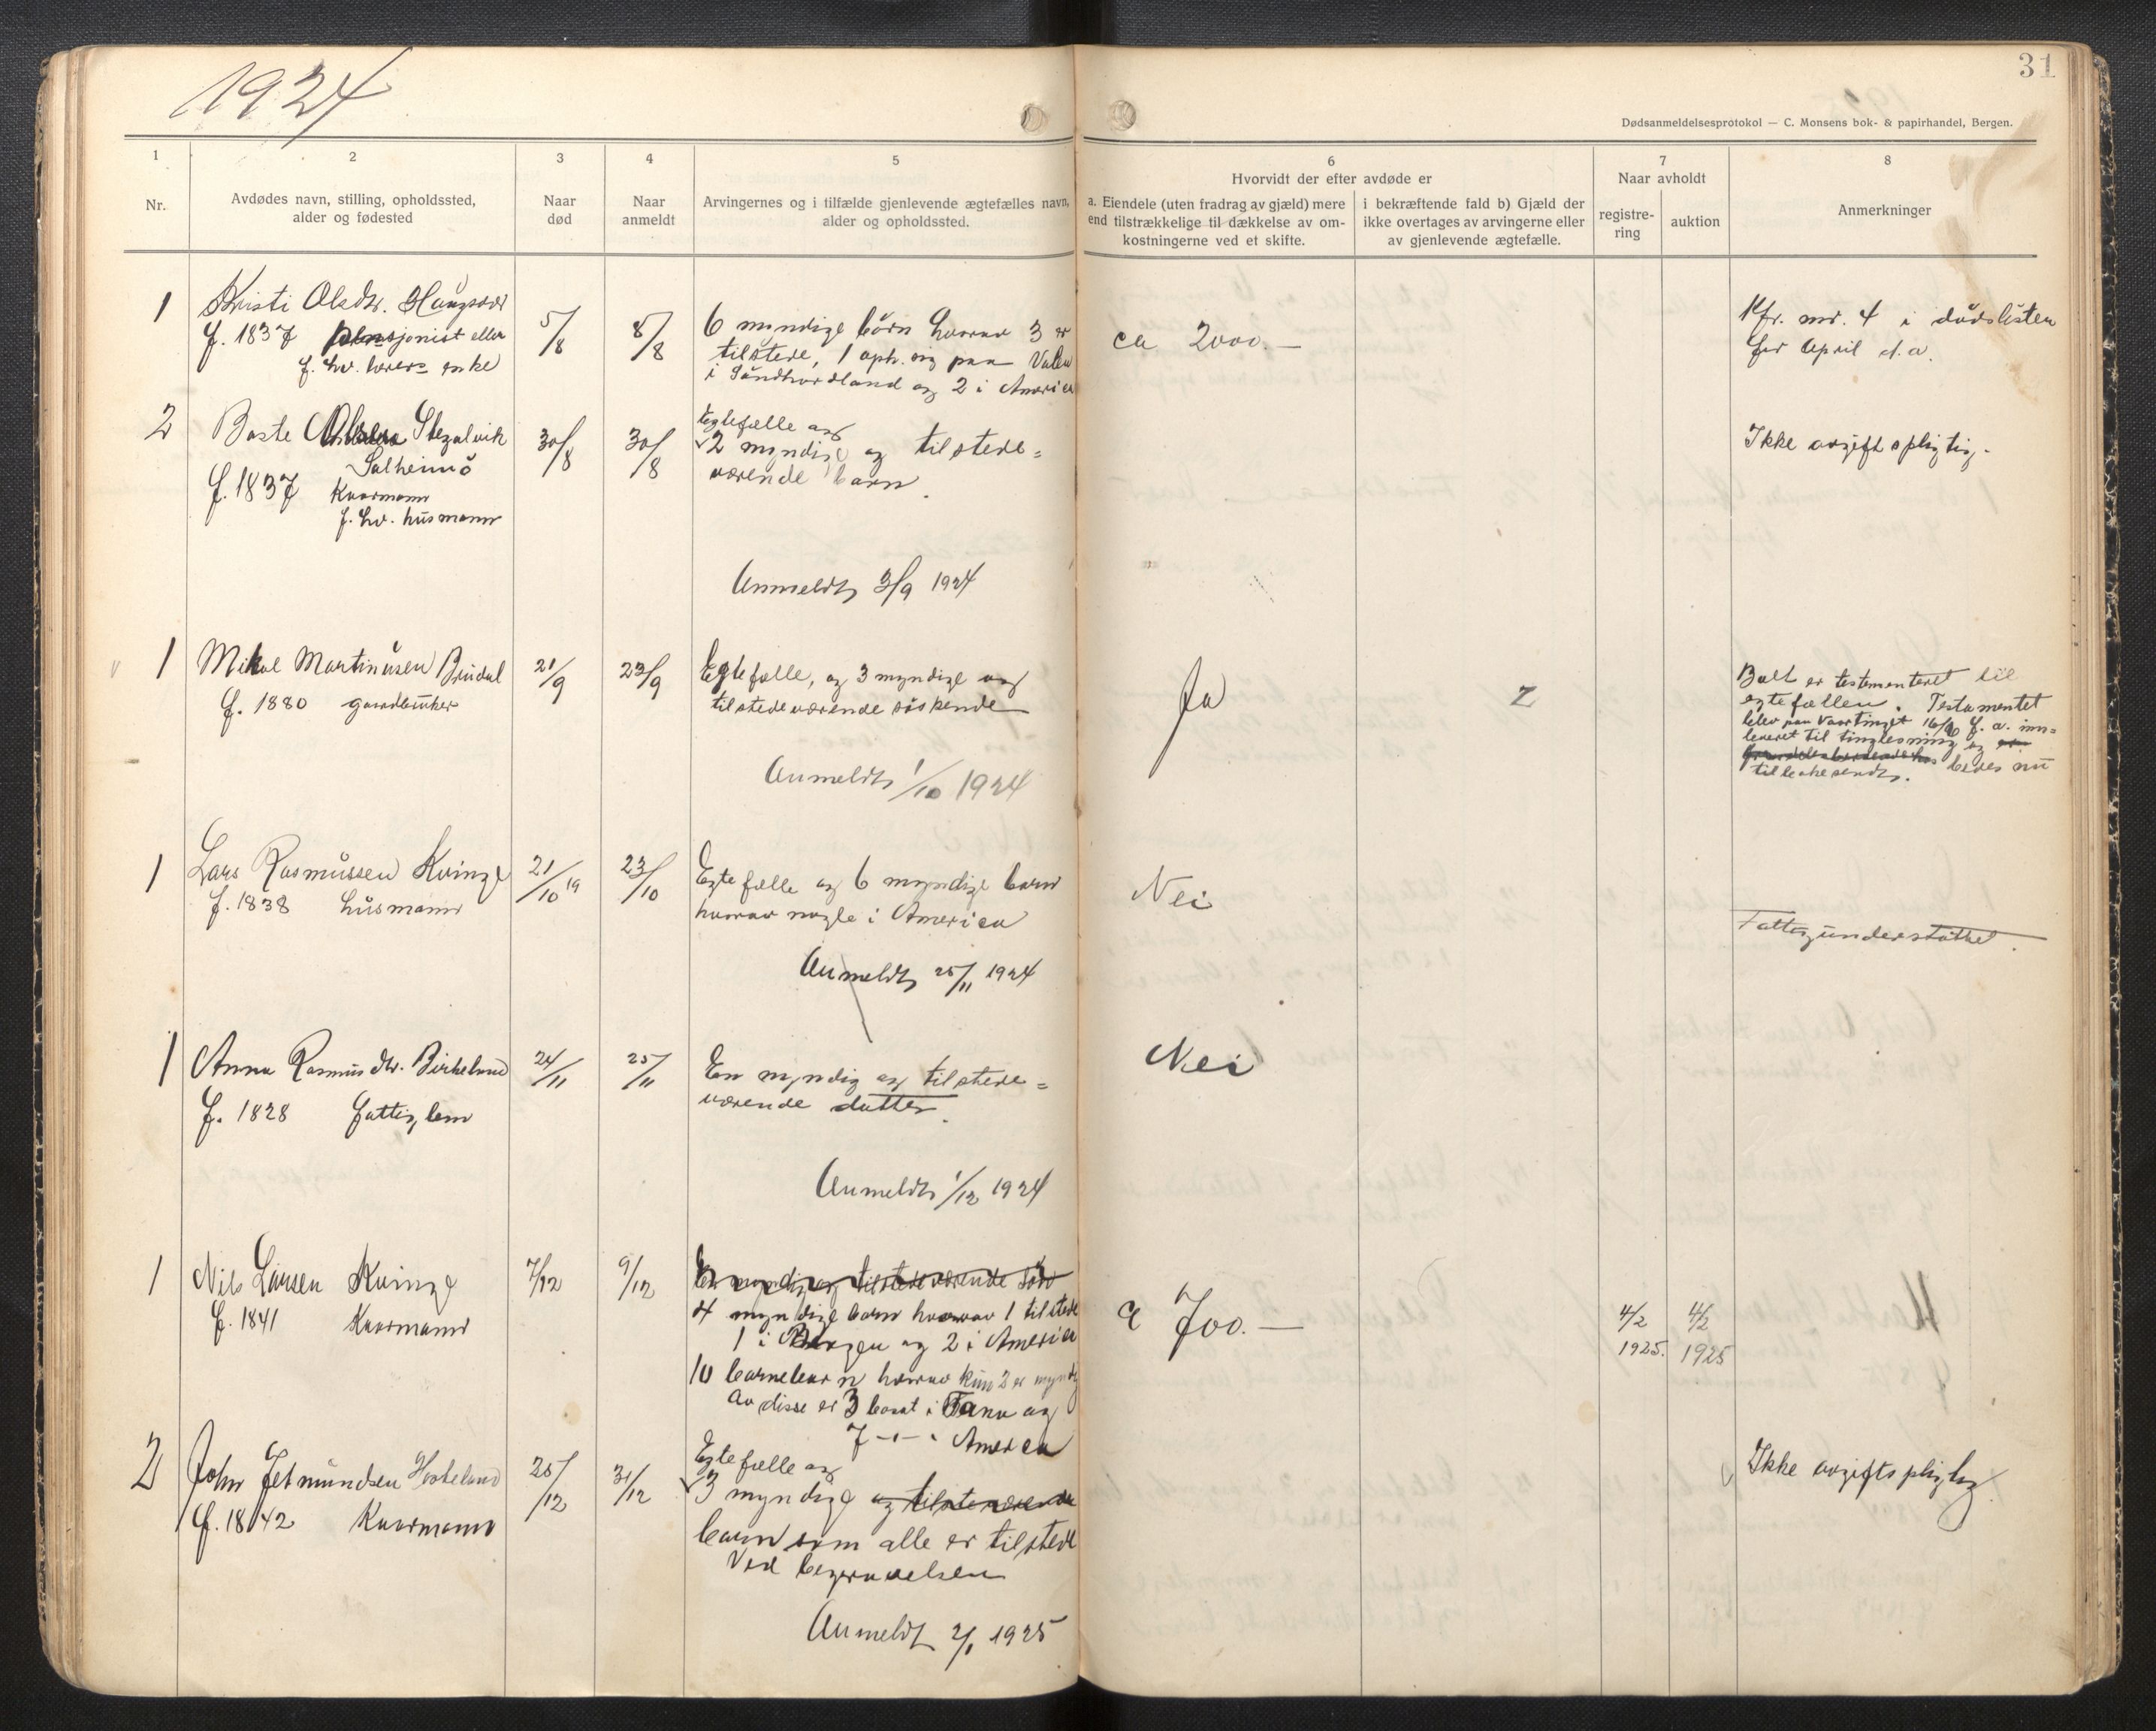 1924
31
Dødsanmeldelsesprotokol — C. Monsens bok- & papirhandel, Bergen.
1
Nr.
2
Avdødes navn, stilling, opholdssted,
alder og fødested
3
Naar
død
4
Naar
anmeldt
5
Arvingernes og i tilfælde gjenlevende ægtefælles navn,
alder og opholdssted.
6
Hvorvidt der efter avdøde er
a. Eiendele (uten fradrag av gjæld) mere
end tilstrækkelige til dækkelse av om-
kostningerne ved et skifte.
i bekræftende fald b) Gjæld der
ikke overtages av arvingerne eller
av gjenlevende ægtefælle.
7
Naar avholdt
registre-
ring
auktion
8
Anmerkninger
1
Kristi Olsdtr.
f. 1837 pensjonist eller
f. hv. lærers enke
5/8
8/8
6 myndige børn hvorav 3 er
tilstede, 1 oph. sig paa Valen
i Søndhordland og 2 i America
ca 2000.—
Kfr. nr. 4 i dødslisten
for April d.a.
2
Baste
f. 1837 Kaarmann
f. hv. husmann
30/8
30/8
Egtefælle og
2 myndige og tilstede=
værende barn.
Ikke avgiftspligtig.
Anmeldt 3/9 1924
1
Mikal Martinusen Brudal
f. 1880 gaardbruker
21/9
23/9
Egtefælle, og 3 myndige og
tilstedeværende søskende
Ja
Boet er testamenteret til
egtefællen. Testamentet
blev paa Vaartinget 16/6 f. a. inn=
leveret til tinglesning og
bedes nu
tilbakesendt.
Anmeldt 1/10 1924
1
Lars Rasmussen Kvinge
f. 1838 husmann
21/10
23/10
Egtefælle og 6 myndige barn
hvorav nogle i America
Nei
Fattigunderstøttet.
Anmeldt 25/11 1924
1
Anna Rasmusdtr. Birkeland
f. 1828 fattiglem
24/11
25/11
En myndig og tilstede=
værende datter.
Nei
Anmeldt 1/12 1924
1
Nils Larsen Kvinge
f. 1841 Kaarmann
7/12
9/12
En myndig og tilstedeværende søn
4 myndige barn hvorav 1 tilstede
1 i Bergen og 2 i America
10 barnebarn hvorav kun 2 er myndig
Av disse er 3 bosat i Fana og
7 -"- i America
700.—
4/2
1925.
4/2
1925
2
John Jetmundsen Hosteland
f. 1842 Kaarmann
25/12
31/12
Egtefælle og
3 myndige og tilsteværende
barn som alle er tilstede
ved begravelsen
Ikke avgiftspligtig
Anmeldt 2/1 1925